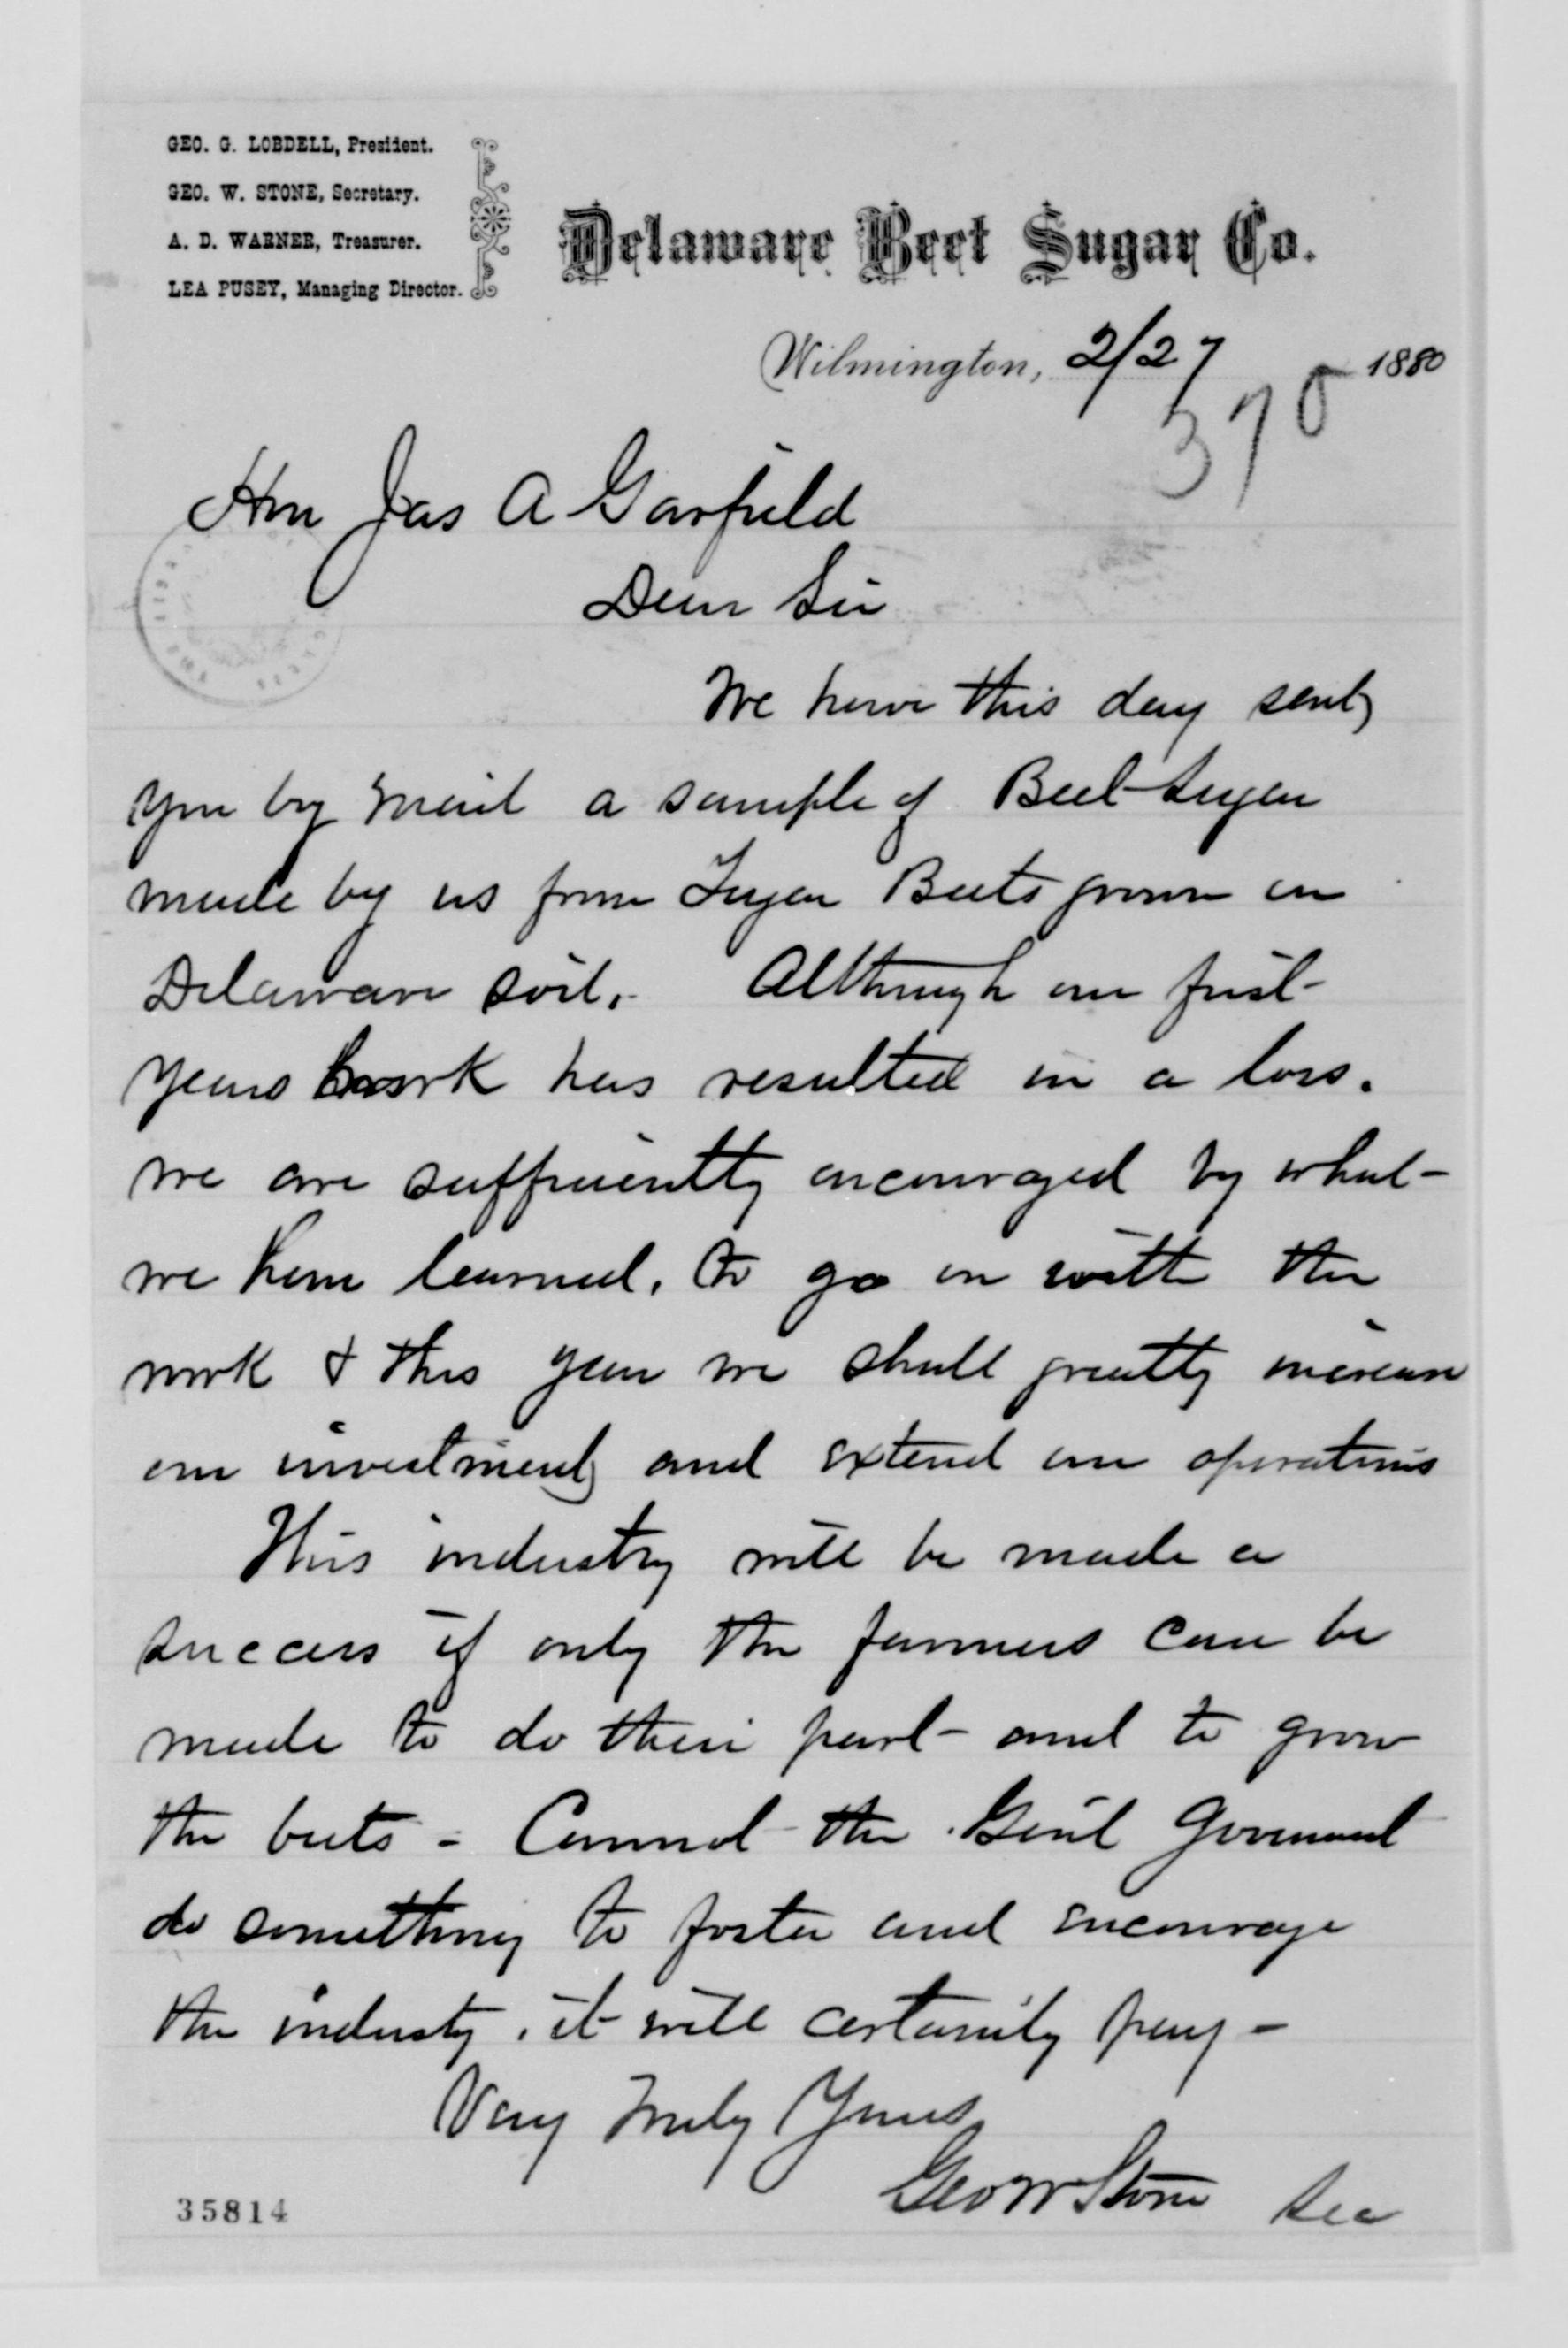 GEO. G. LOBDELL, President.
GEO. W. STONE, Secretary.
A. D. WARNER, Treasurer.
LEA PUSEY, Managing Director.
Delaware Beet Sugar Co.
Wilmington, 2/27 1880
370
Hon Jas A Garfield
Dear Sir
We have this day sent
you by mail a sample of Beet Sugar
made by us from Sugar Beets grown in
Delaware soil. Although our first
years work has resulted in a loss.
we are sufficiently encouraged by what
we have learned, to go on with the
work & this year we shall greatly increase
our investment and extend our operations
This industry will be made a
success if only the farmers can be
made to do their part - and to grow
the beets - Cannot the Genl Government
do something to foster and encourage
the industry, it will certainly pay -
Very Truly Yours
Geo W Stone Sec
35814